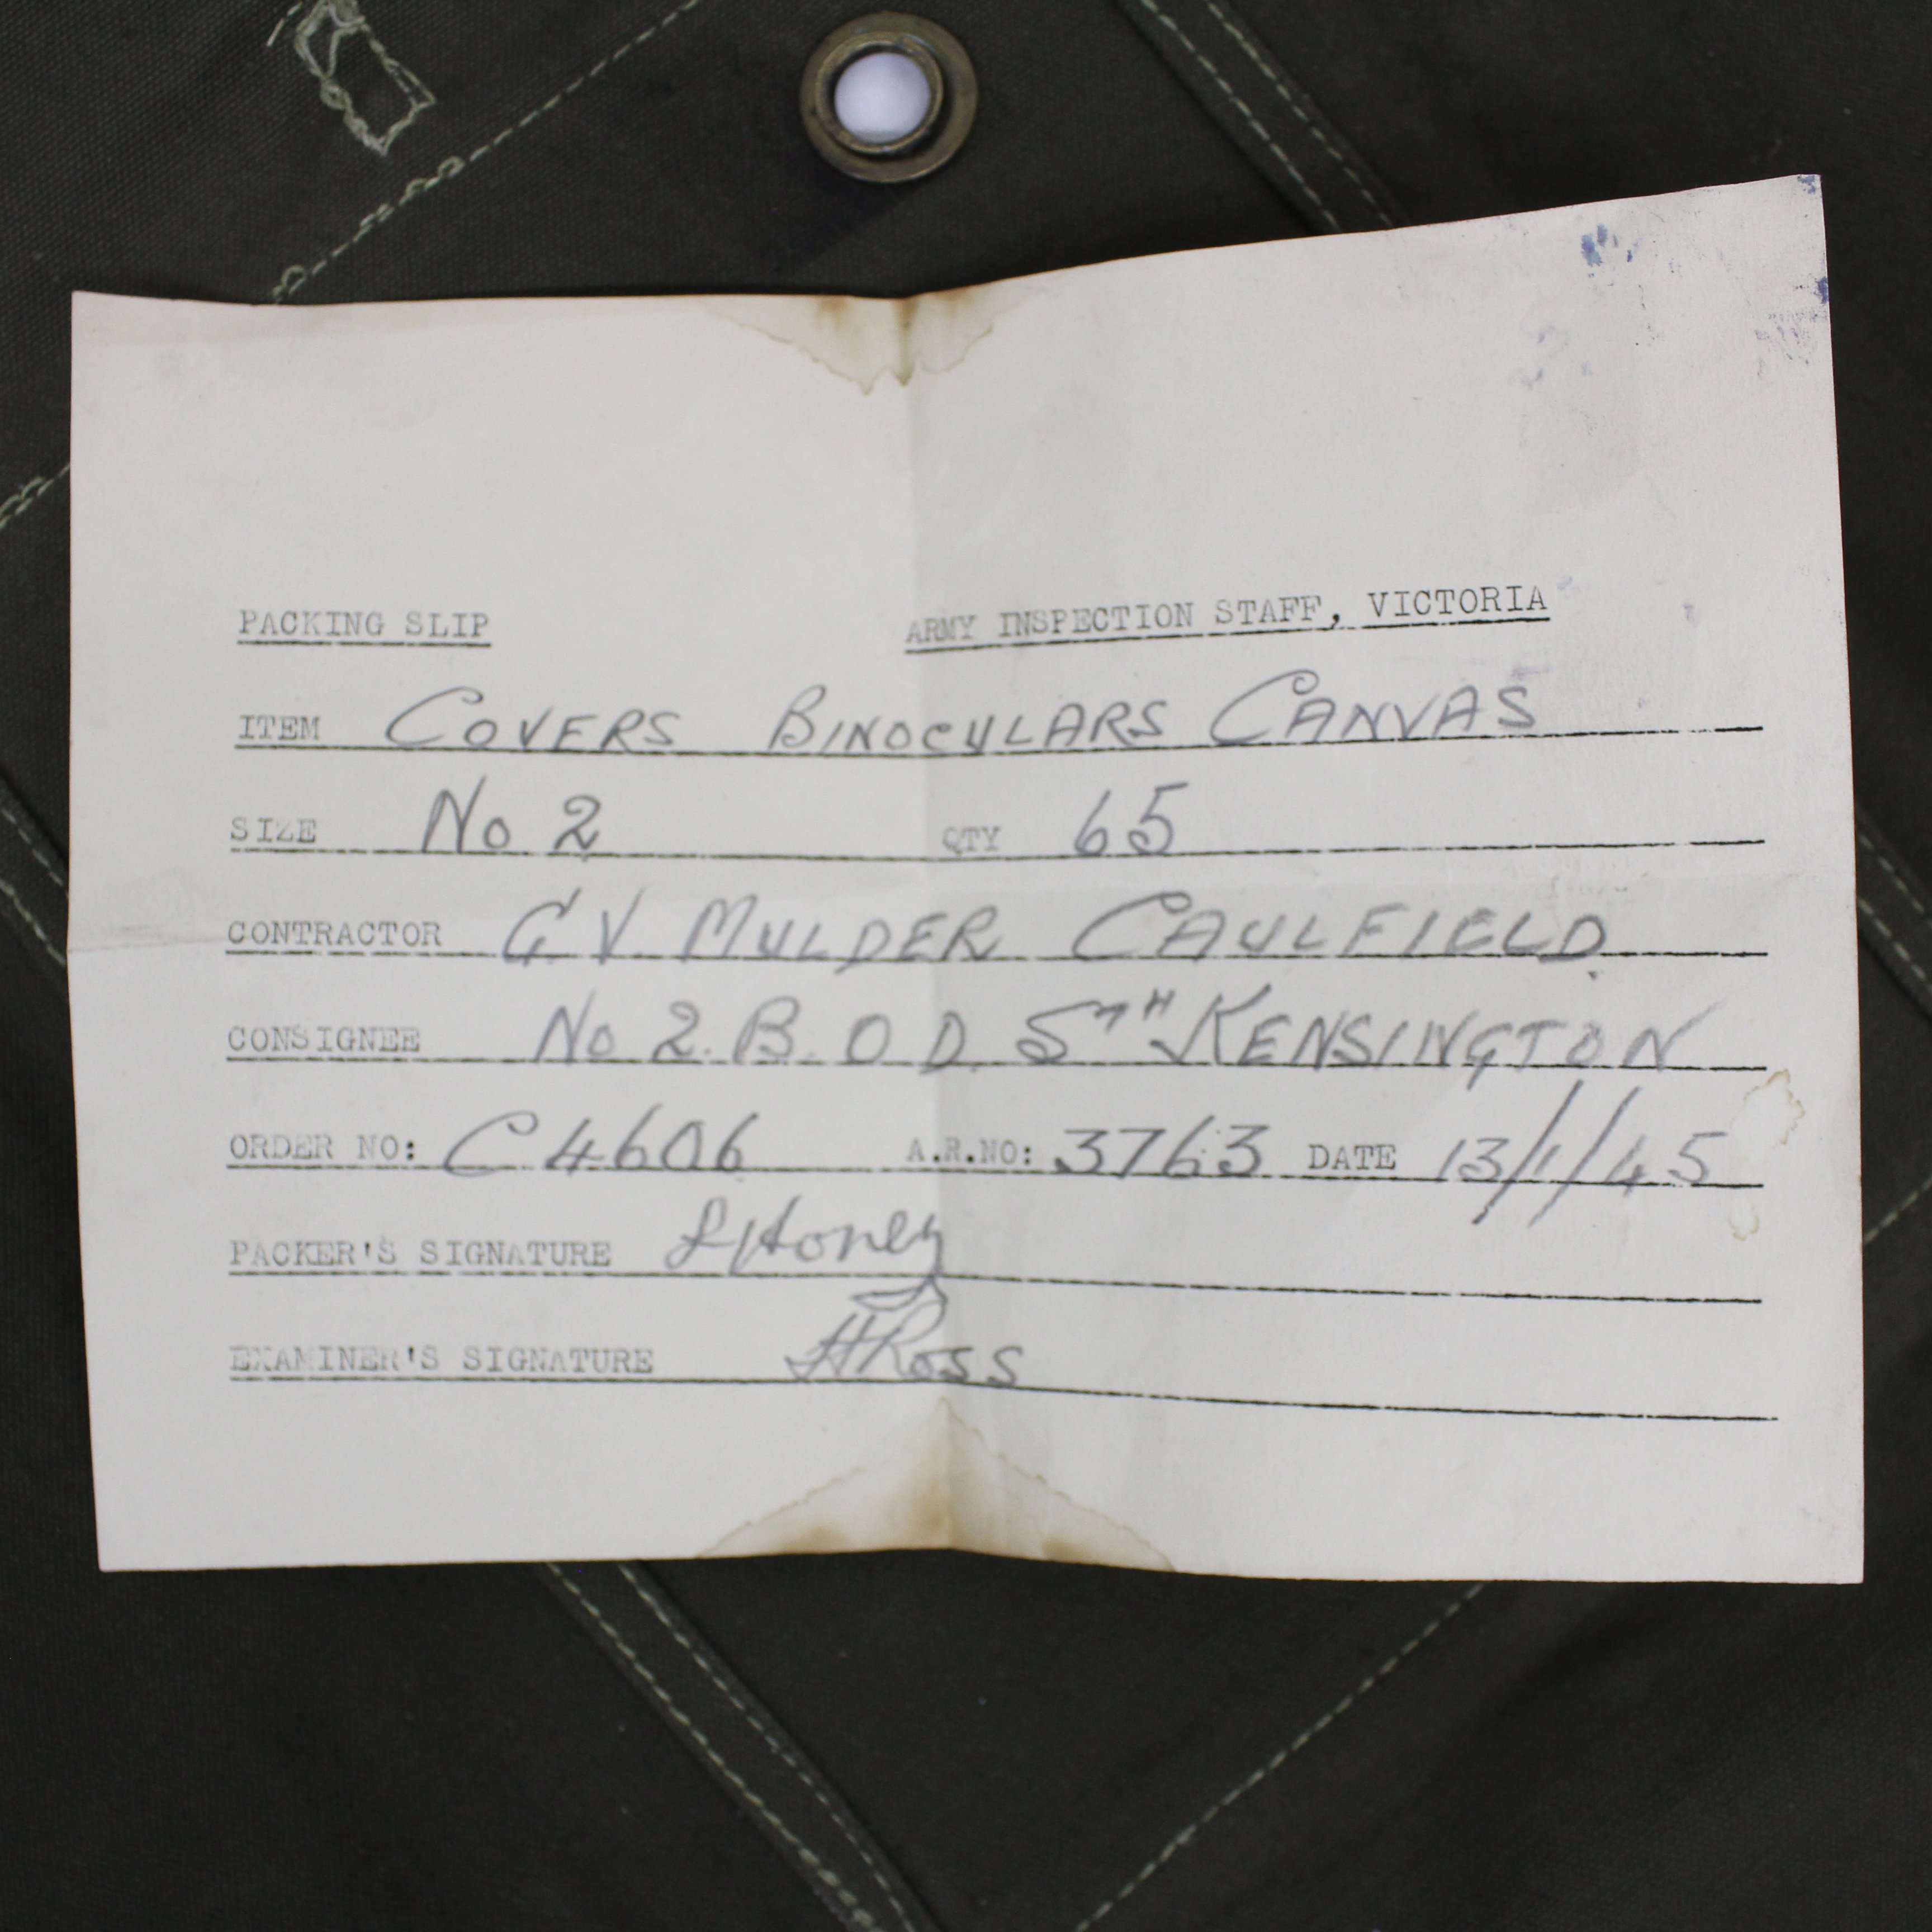 PACKING SLIP ARMY INSPECTION STAFF, VICTORIA
ITEM COVERS BINOCULARS CANVAS
SIZE No 2 QTY 65
CONTRACTOR G.V. MULDER CAULFIELD
CONSIGNEE No 2. B.O.D. STH KENSINGTON
ORDER NO: C4606 A.R.NO: 3763 DATE 13/1/45
PACKER'S SIGNATURE L Honey
EXAMINER'S SIGNATURE H Ross